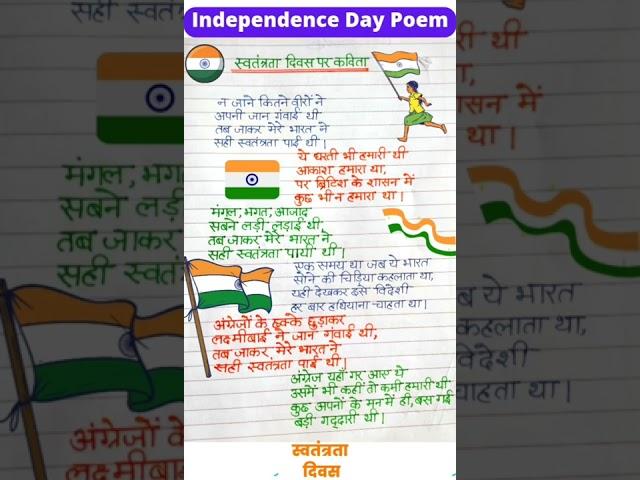 Independence Day Poem
स्वतंत्रता दिवस पर कविता
न जाने कितने वीरों ने
अपनी जान गंवाई थी
तब जाकर मेरे भारत ने
सही स्वतंत्रता पाई थी |
ये धरती भी हमारी थी
आकाश हमारा था,
पर ब्रिटिश के शासन में
कुछ भी न हमारा था |
मंगल, भगत, आजाद
सबने लड़ी लड़ाई थी,
तब जाकर मेरे भारत ने
सही स्वतंत्रता पायी थी |
एक समय था जब ये भारत
सोने की चिड़िया कहलाता था,
यही देखकर इसे विदेशी
हर बार हथियाना चाहता था |
अंग्रेजों के छक्के छुड़ाकर
लक्ष्मीबाई ने जान गंवाई थी,
तब जाकर मेरे भारत ने
सही स्वतंत्रता पाई थी |
अंग्रेज यहाँ गर आए थे
उसमें भी कहीं तो कमी हमारी थी
कुछ अपनों के मन में ही, बस गई
बड़ी गद्दारी थी |
स्वतंत्रता
दिवस